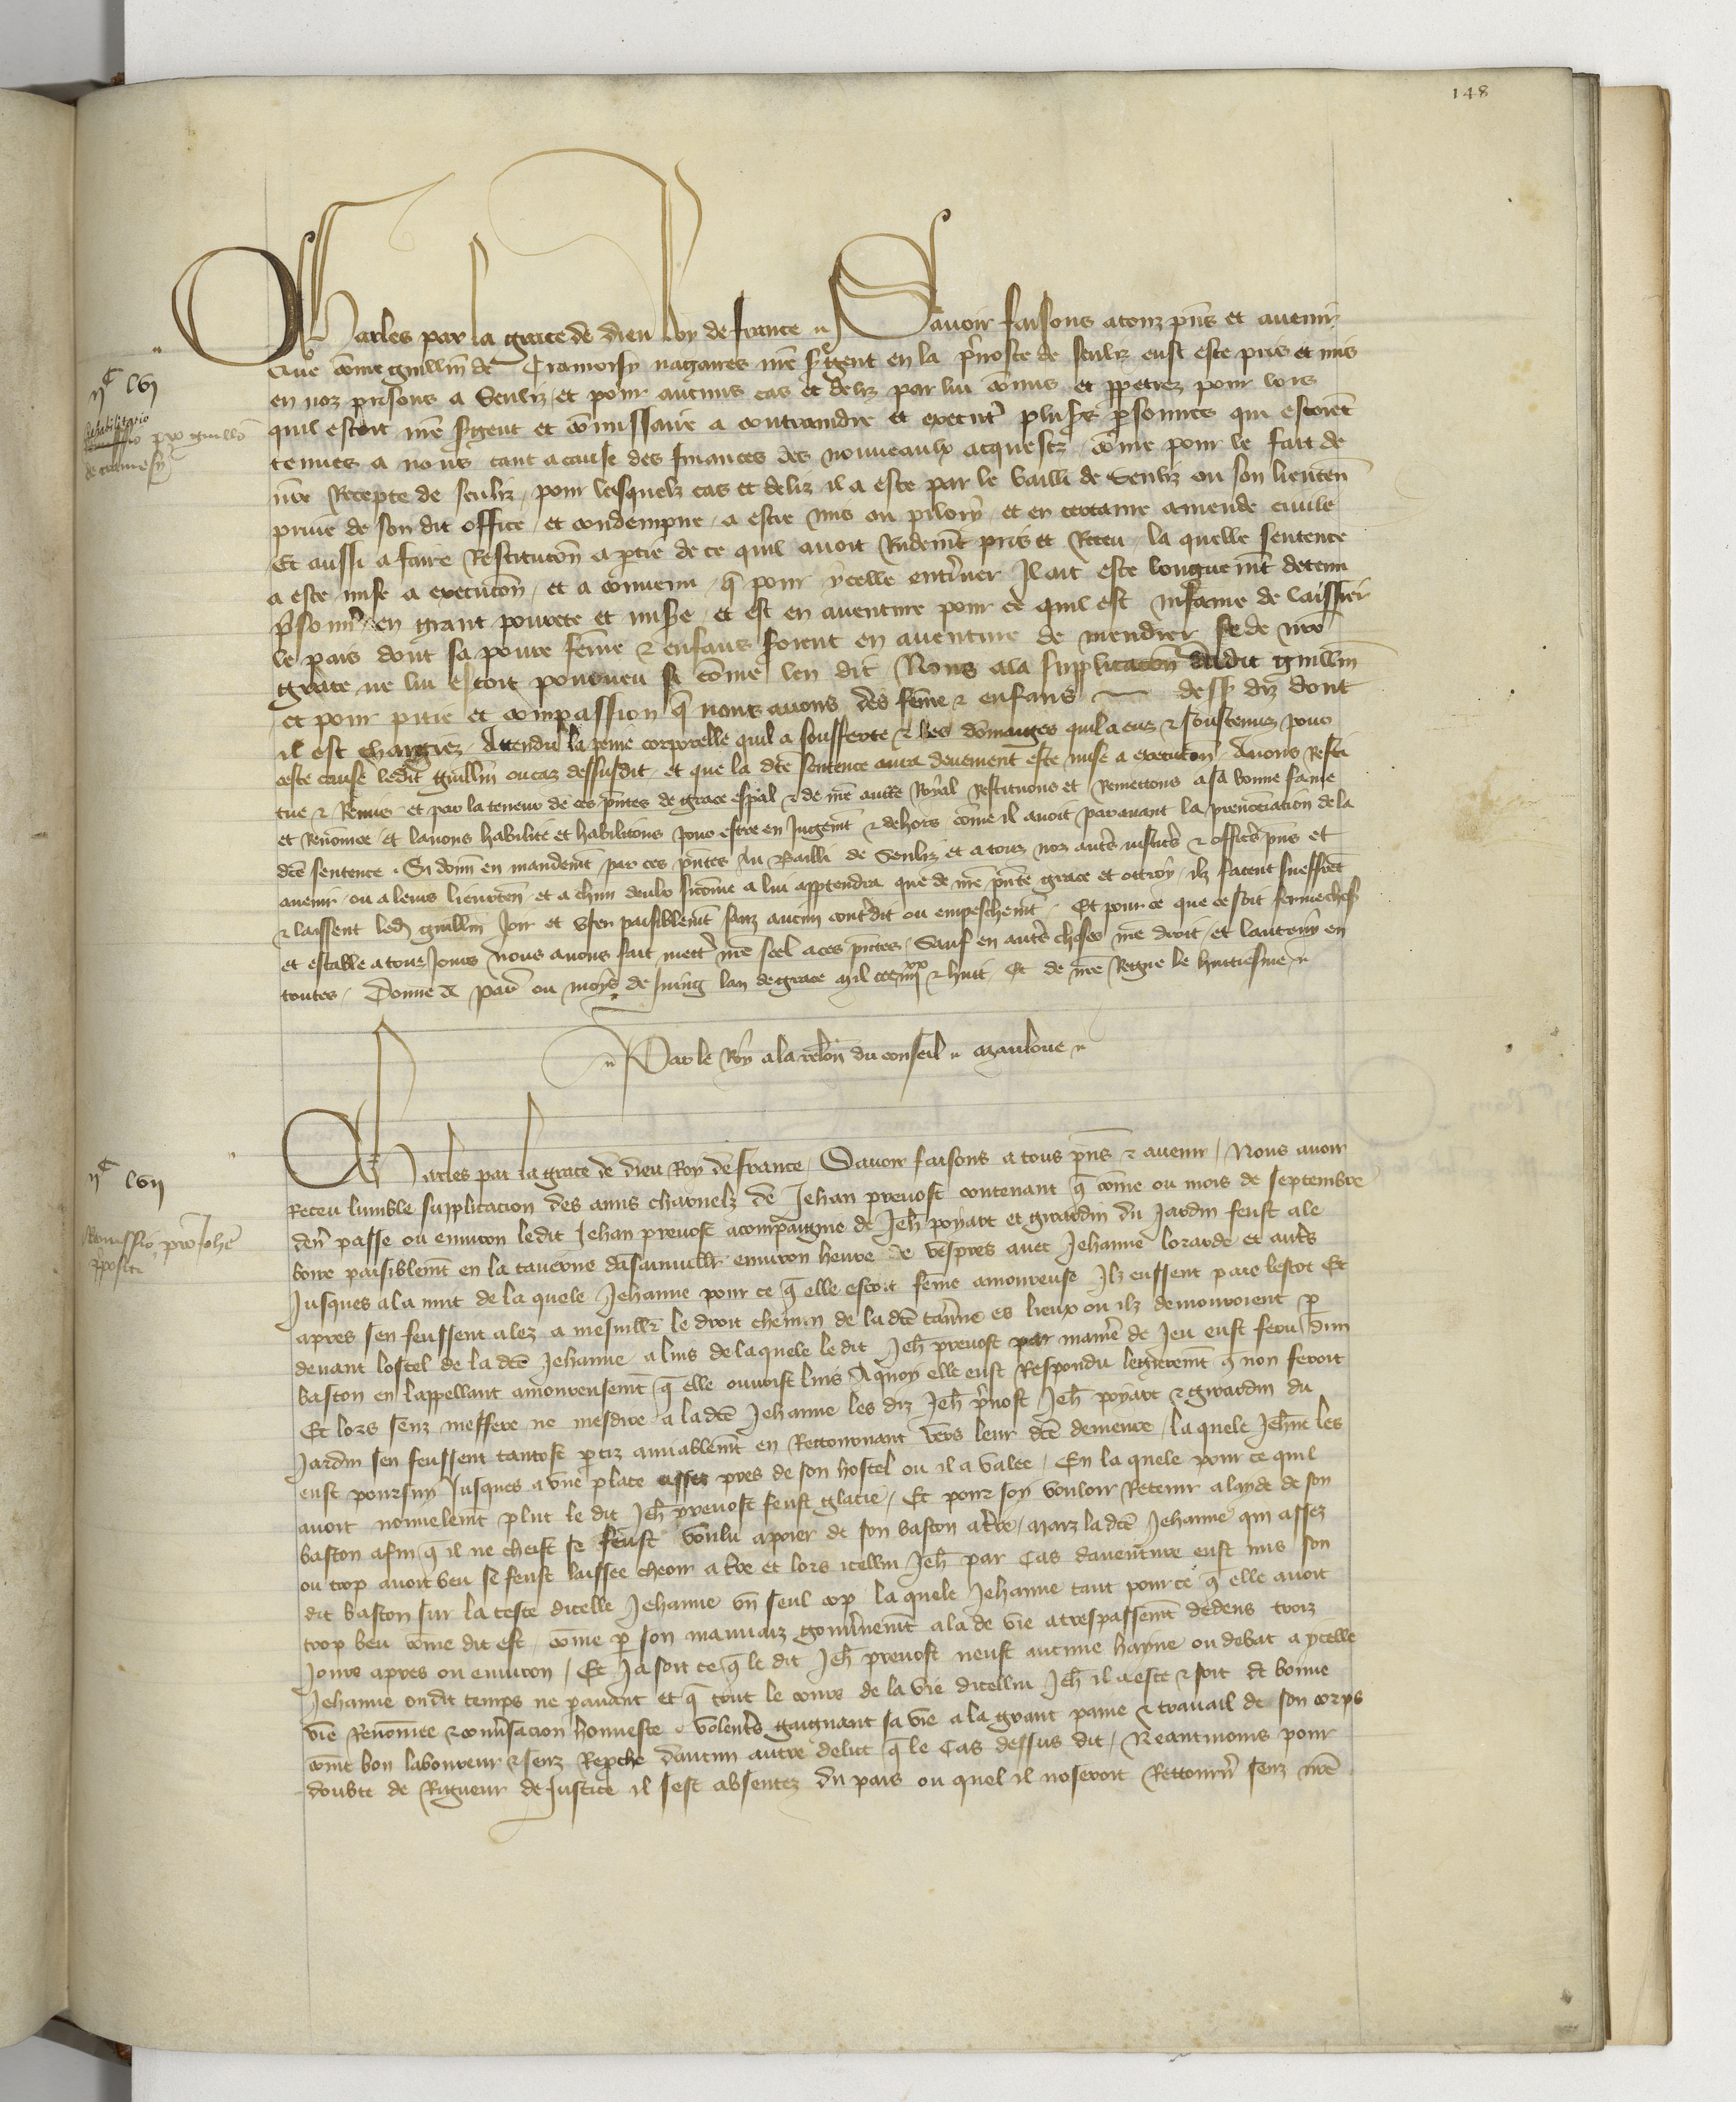 148
Charles par la grace de dieu Roy de france Savoir faisons a touz pñs et avenir
Que cõme guillm̃ de Cramoisy nagaires nr̃e sʼgent en la pʼvoste de senliz eust este pris et mis
en noz prisons a Senliz et pour aucuns cas et deliz par lui cõmis et ppetrez pour lors
quil estoit nr̃e sʼgent et cõmissaire a contraindre et executʼ plusʼs psonnes qui estoiẽt
tenues a nous tant a cause des finances des nouveaulx acquestz cõme pour le fait de
nr̃e Recepte de senliz pour lesquelz cas et deliz il a este par le bailli de Senliz ou son lieuteñ
prive de son dit office et condempne a estre mis ou pilory et en certaine amende civile
Et aussi a faire Restitucõn a ptie de ce quil avoit Indeuem̃t pris et Receu la quelle sentence
a este mise a execucõn et a convenu q̃ pour ycelle entʼiner Il ait este longuem̃t detenu
pʼsonñ en grant povrete et misʼe et est en aventure pour ce quil est infame de laissier
le pais dont sa povre fẽme & enfans soient en aventure de mendier se de nr̃e
grace ne lui estoit pourveu si cõme len dit Nous ala supplicacõn dudit guillm̃
et pour pitie et compassion q̃ nous avons des fẽme & enfans dessus diz dont
il est chargiez Attendu la peine corporelle quil a soufferte & les dõmages quil a euz & soustenuz pour
ceste cause ledit guillm̃ ou cas dessusdit et que la dc̃e sentence aura deuement este mise a execucõn Avons Resti
tue & Remis et par la teneur de ces pñtes de grace esp̃al & de nr̃e auct̃e Royal Restituons et Remettons a sa bonne fame
et Renõmee Et lavons habilite et habilitons pour estre en Jugem̃t & dehors cõme il avoit paravant la prenõciation de la
dc̃e sentence Si donñ en mandem̃t par ces pñtes Au Bailli de Senliz et a touz noz autʼs justicʼs & officʼs pñs et
avenir ou a leurs lieuxteñ et a chũn deulx sicõme a lui appartendra que de nr̃e pñte grace et ottroy ilz facent sueffrẽt
& laissent led guillm̃ Joir et user paisiblem̃t sanz aucun contʼdit ou empeschem̃t Et pour ce que ce soit ferme chose
et estable a tous Jours Nous avons fait mettʼ nr̃e seel a ces pñtes Sauf en autʼs choses nr̃e droit et lautruy en
toutes Donne a parʼ ou moys de Juing lan de grace mil ccc iiiixx & huit Et de nr̃e Regne le huitiesme
Par le Roy a la relõn du conseil Mauloue
iic lvi
Rehabilitacio
pro guillõ
de cramesy
Charles par la grace de dieu Roy de france Savoir faisons a tous pñs & avenir Nous avoir
Receu lumble supplicacion des amis charnelz de Jehan prevost contenant q̃ cõme ou mois de septembre
deñ passe ou environ ledit Jehan prevost acompaignie de Jeh̃ poyart et girardin du Jardin feust ale
boire paisiblem̃t en la taverne environ heure de vespres avec Jehanne lorarde et autʼs
Jusques a la nuit de la quele Jehanne pour ce q̃ elle estoit fẽme amoureuse Ilz eussent paie lescot Et
apres sen feussent alez a mesnillʼ le droit chemin de la dc̃e tav̾ne es lieux ou ilz demouroient p
devant lostel de la dc̃e Jehanne a luis de laquele le dit Jeh̃ prevost par manieʼ de Jeu eust feru dun
baston en lappellant amoureusem̃t q̃ elle ouvrist luis A quoy elle eust Respondu legierem̃t q̃ non feroit
Et lors senz meffere ne mesdire a la dc̃e Jehanne les diz Jeh̃ pʼvost Jeh̃ poyart & girardin du
Jardin sen feussent tantost ptiz amiablem̃t en Rettournant vers leur dc̃e demeure la quele Jeh̃ne les
eust poursuy Jusques a une place assez pres de son hostel ou il a valee En la quele pour ce quil
avoit nouvelem̃t plut le dit Jeh̃ prevost feust glacie Et pour soy vouloir Retenir a layde de son
baston afin q̃ il ne cheist se feust voulu apoier de son baston a tʼre maiz la dc̃e Jehanne qui assez
ou trop avoit beu se feust laissee cheoir a tʼre et lors icellui Jeh̃ par Cas daventure eust mis son
dit baston sur la teste dicelle Jehanne un seul cop la quele Jehanne tant pour ce q̃ elle avoit
trop beu cõme dit est cõme p son mauvaiz gouvʼnem̃t ala de vie a trespassem̃t dedens troiz
Jours apres ou environ Et Ja soit ce q̃ le dit Jeh̃ prevost neust aucune hayne ou debat a ycelle
Jehanne ou dit temps ne pavant et q̃ tout le cours de la vie dicellui Jeh̃ il a este & soit de bonne
vie Renõmee & convʼsacion honneste & volentʼs gaignant sa vie a la grant paine & travail de son corps
cõme bon laboureur & senz Repche daucun autre delict q̃ le Cas dessus dit Neantmoins pour
doubte de Rigueur de Justice il sest absentez du pais ou quel il noseroit Rettournʼ senz nr̃e
iic lvii
Remissio pro Johe
pʼpositi